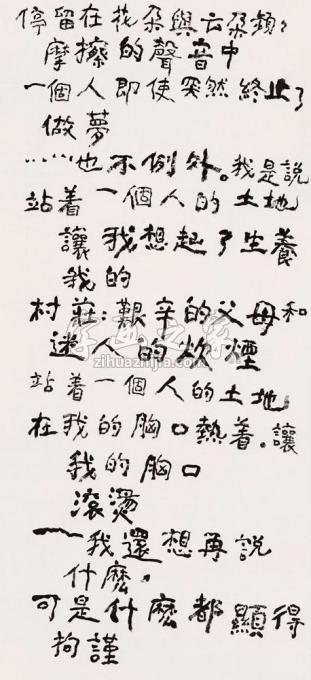 停留在花朵與云朵頻頻
摩擦的聲音中
一個人即使突然終止了
做夢
……也不例外。我是説
站着一個人的土地
讓我想起了生養
我的
村莊:艱辛的父母和
迷人的炊煙
站着一個人的土地
在我的胸口熱着。讓
我的胸口
滾燙
——我還想再説
什麽。
可是什麽都顯得
拘謹
zihuazhijia.com